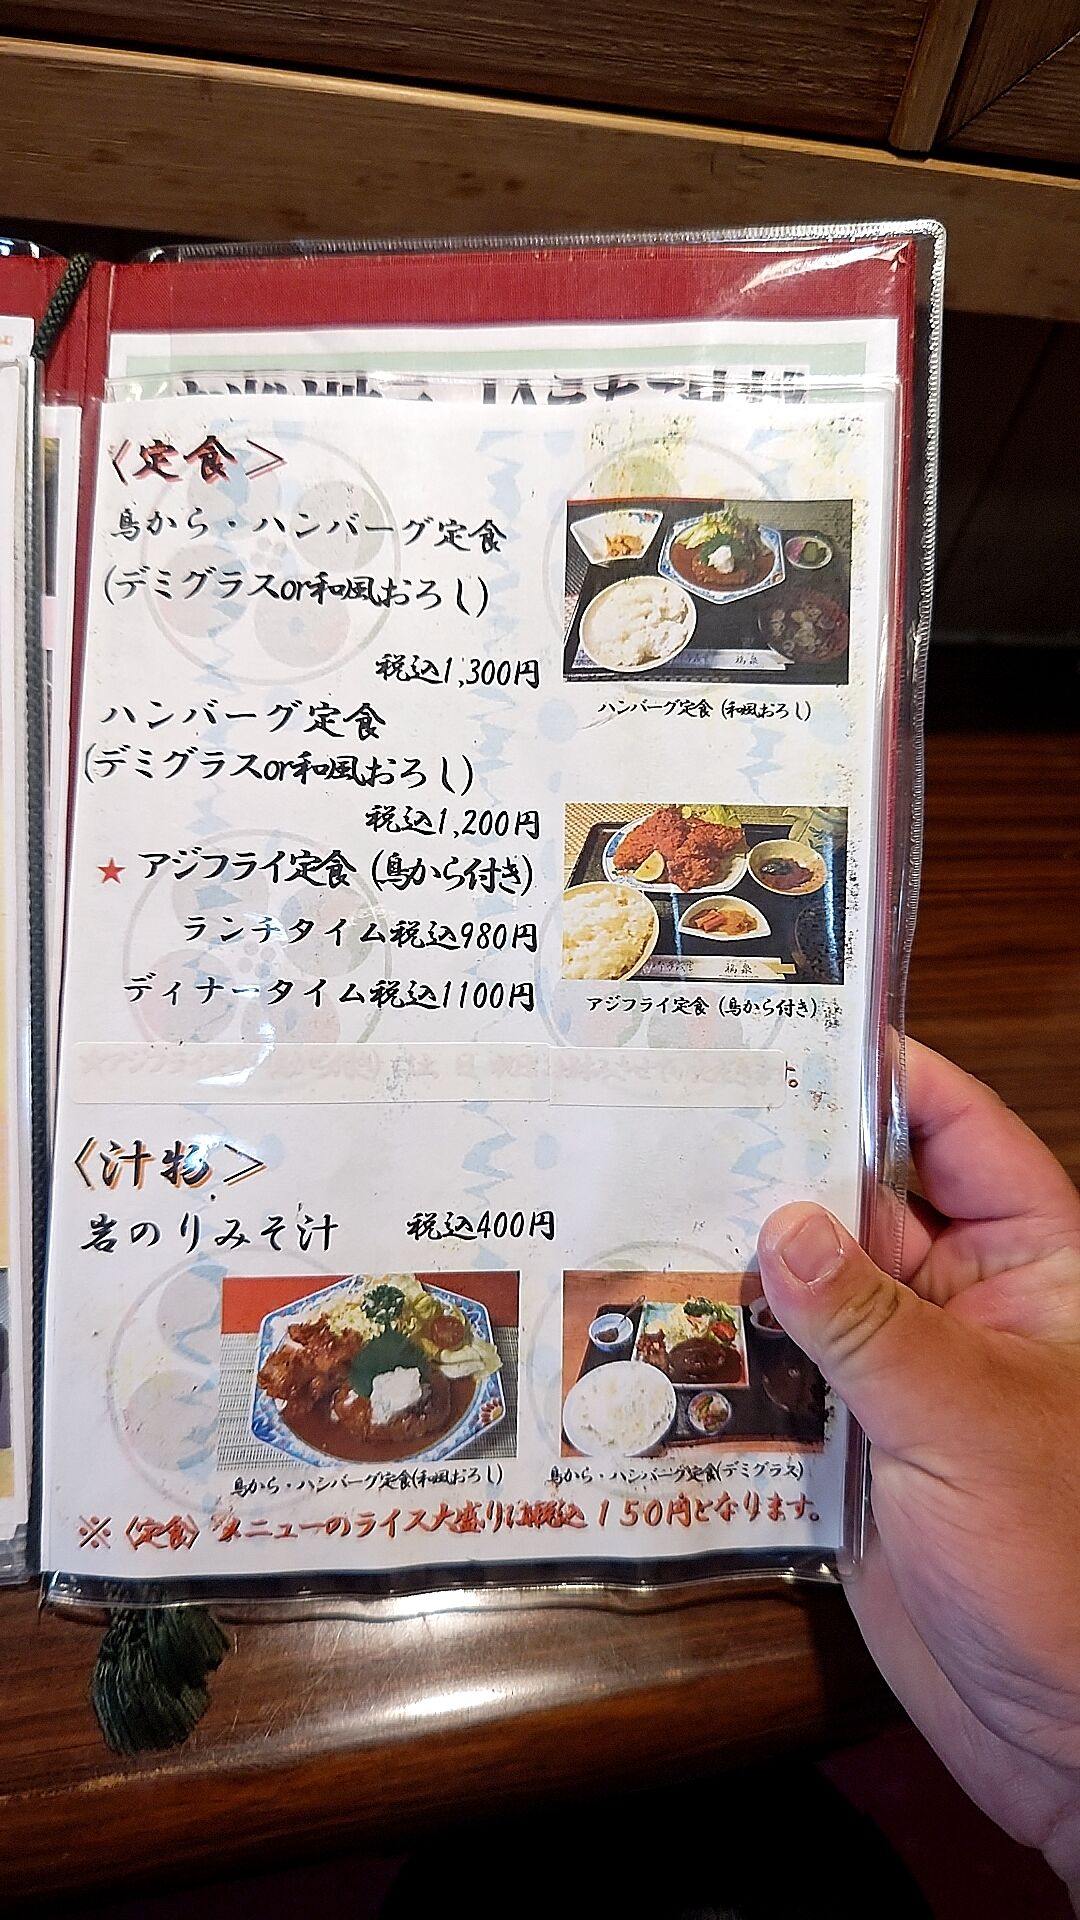 〈定食〉
鳥から・ハンバーグ定食
(デミグラスor和風おろし)
税込1,300円
ハンバーグ定食(和風おろし)
ハンバーグ定食
(デミグラスor和風おろし)
税込1,200円
★アジフライ定食(鳥から付き)
ランチタイム税込980円
ディナータイム税込1100円
アジフライ定食(鳥から付き)
〈汁物〉
岩のりみそ汁 税込400円
鳥から・ハンバーグ定食(和風おろし)
鳥から・ハンバーグ定食(デミグラス)
※〈定食〉メニューのライス大盛りは税込150円となります。